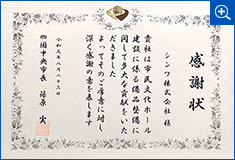 感謝状
シンワ株式会社 様
貴社は市民文化ホール
建設に係る備品整備に
関して多大な貢献をいた
だきました
よってそのご厚意に対し
深く感謝の意を表します
令和元年八月二十三日
四国中央市長 篠原 実